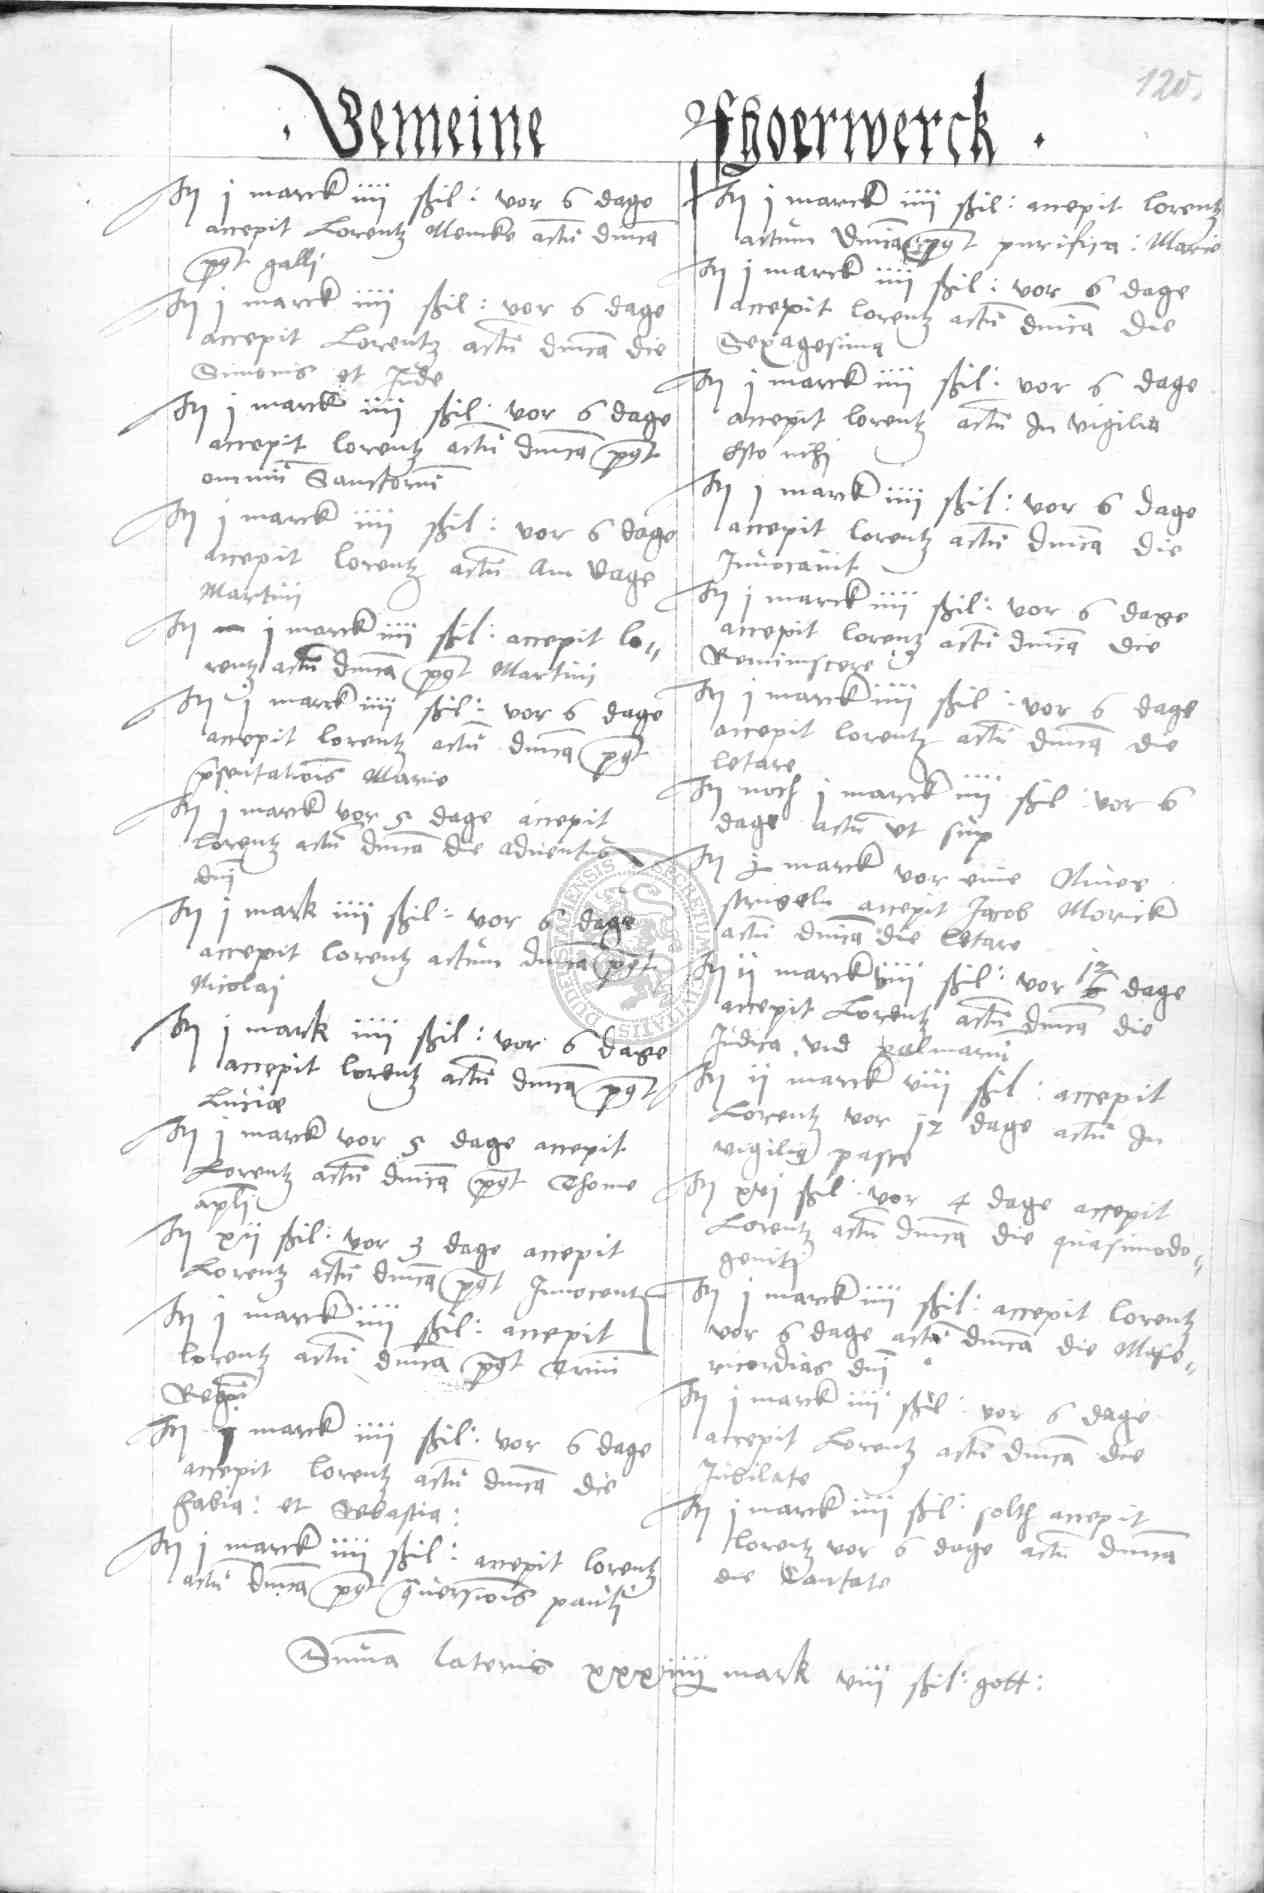 120.
· Gemeine Fhoerwerck ·
It j marck iiij ßil: vor 6 dage
accepit Lorentz Mencke actu dnica
pt galli
It j marck iiij ßil: vor 6 dage
accepit Lorentz actu dnica die
Simonis et Jude
It j marck iiij ßil: vor 6 dage
accepit lorentz actu dnica pt
omniu Sanctoru
It j marck iiij ßil: vor 6 dage
accepit lorentz actu Am dage
Martini
It j marck iiij ßil: accepit lo-
rentz actu dnica pt Martini
It j marck iiij ßil: vor 6 dage
accepit lorentz actu dnica pt
psentationis Marie
It j marck vor 5 dage accepit
Lorentz actu dnica die adventus
dni
It j mark iiij ßil: vor 6 dage
accepit lorentz actum dnica pt
Nicolai
It j mark iiij ßil: vor 6 dage
accepit lorentz actu dnica pt
Lucie
It j marck vor 5 dage accepit
Lorentz actu dnica pt Thome
apli
It xij ßil: vor 3 dage accepit
Lorentz actu dnica pt Innocent
It j marck iiij ßil: accepit
lorentz actu dnica pt Triu
Regu
It j marck iiij ßil: vor 6 dage
accepit lorentz actu dnica die
Fabia: et Sebastia:
It j marck iiij ßil: accepit lorentz
actu dnica pt gversiois pauli
It j marck iiij ßil: accepit lorentz
actum dnica pt purifica: Marie
It j marck iiij ßil: vor 6 dage
accepit lorentz actu dnica die
Sexagesima
It j marck iiij ßil: vor 6 dage
accepit lorentz actu In vigilia
Esto mihi
It j marck iiij ßil: vor 6 dage
accepit lorentz actu dnica die
Invocavit
It j marck iiij ßil: vor 6 dage
accepit lorentz actu dnica die
Reminiscere
It j marck iiij ßil: vor 6 dage
accepit lorentz actu dnica die
letare
It noch j marck iiij ßil: vor 6
dage actu ut sup
It marck vor eine
accepit Jacob Morick
actu dnica die letare
It ij marck ßil: vor 12 dage
accepit Lorentz actu dnica die
Judica und palmaru
It ij marck viij ßil: accepit
Lorentz vor 12 dage actu In
vigilia pasce
It xvj ßil: vor 4 dage accepit
Lorentz actu dnica die quasimodo-
geniti
It j marck iiij ßil: accepit lorentz
vor 6 dage actu dnica die Mise-
ricordias dni
It j marck iiij ßil: vor 6 dage
accepit Lorentz actu dnica die
Jubilate
It j marck iiij ßil: solth accepit
lorentz vor 6 dage actu dnica
die Cantate
Suma lateris mark viij ßil: gott: